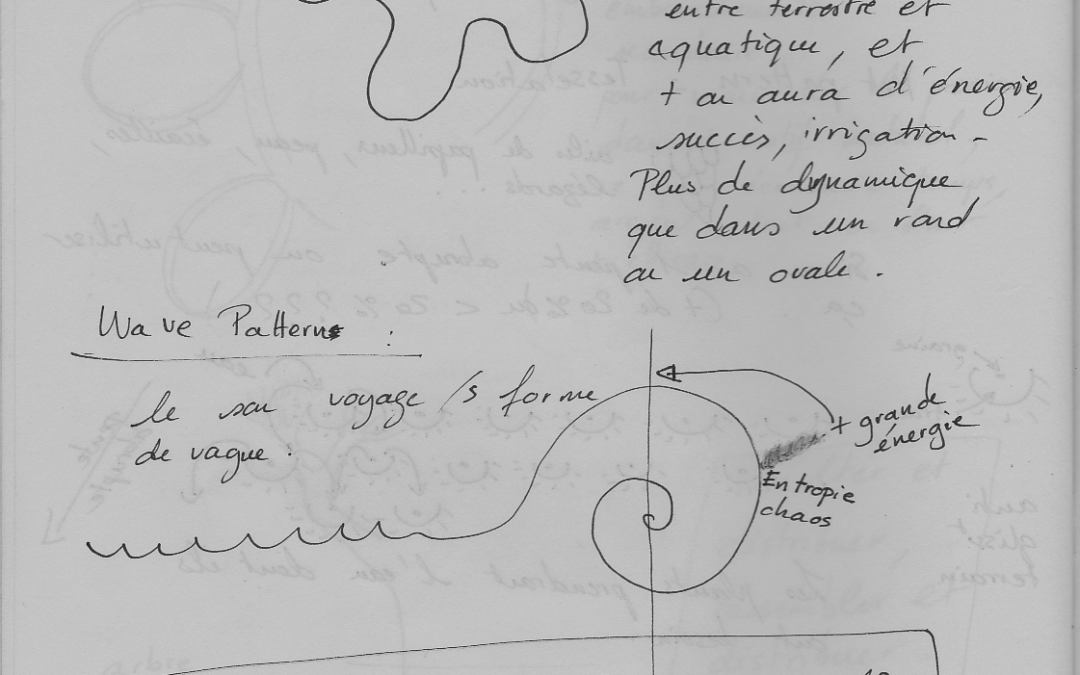 entre terrestre et
aquatique, et
+ on aura d'énergie,
succès, irrigation -
Plus de dynamique
que dans un rond
ou un ovale.
Wave Patterns :
le son voyage /s forme
de vague :
+ grande
énergie
Entropie
chaos